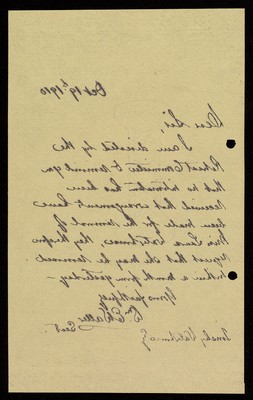 Oct 19th 1910
Dear Sir,
I am directed by the
Relief Committee to remind you
that no intimation has been
received that arrangements have
been made for the removal of
Mrs Laura Valentine. They therefore
request that she may be removed
within a month from yesterday —
Yours faithfully
Secy.
Valentine Esq